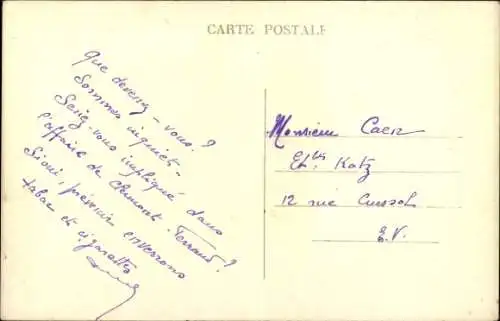 CARTE POSTALE
Que devenez-vous ?
Sommes inquiet -
Seriez-vous impliqué dans
l'affaire de Clermont-Ferrand ?
Si oui, prévenir enverrons
tabac et cigarettes
Monsieur Caen
Ets Katz
12 rue Cussol
E.V.